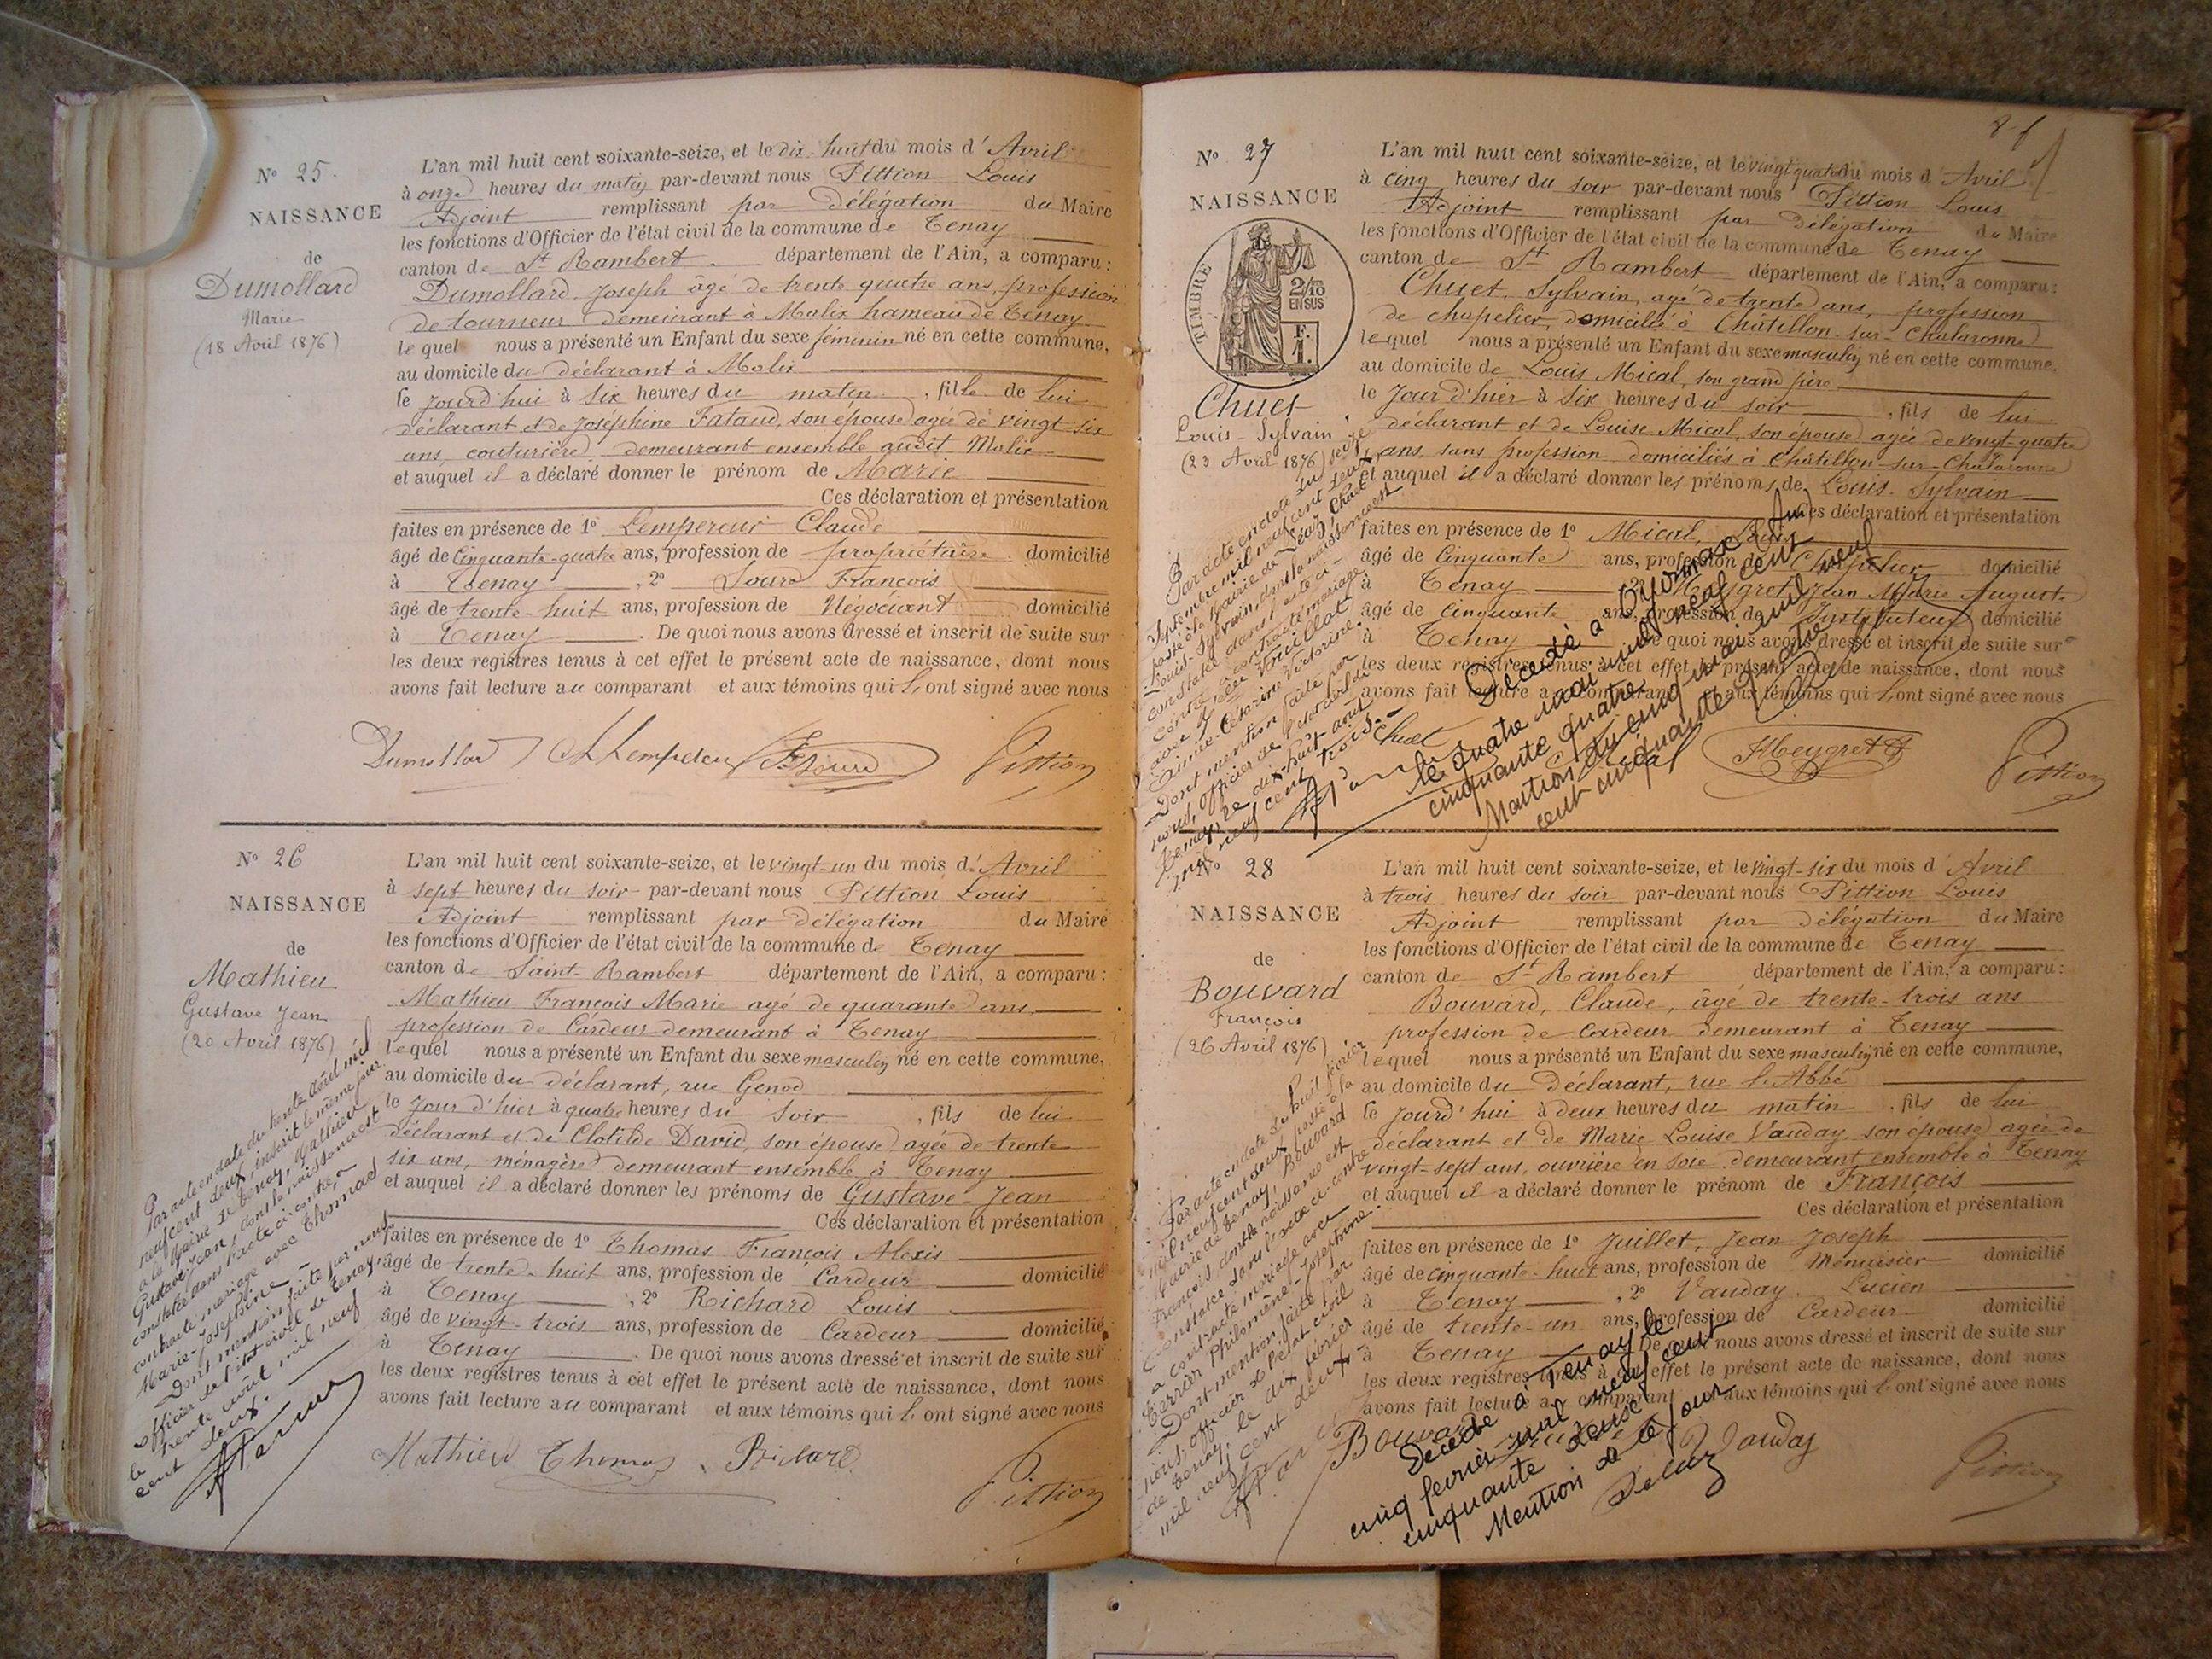 N° 25.
NAISSANCE
de
Dumollard
Marie
(18 Avril 1876)
L'an mil huit cent soixante-seize, et le dix-huit du mois d'Avril
à onze heures du matin par-devant nous Pittion Louis
Adjoint remplissant par délégation du Maire
les fonctions d'Officier de l'état civil de la commune de Tenay
canton de St Rambert département de l'Ain, a comparu :
Dumollard Joseph âgé de trente quatre ans, profession
de tourneur demeurant à Malix hameau de Tenay
lequel nous a présenté un Enfant du sexe féminin né en cette commune,
au domicile du déclarant à Malix
le jourd'hui à six heures du matin, fille de lui
déclarant et de Joséphine Fataud, son épouse agée de vingt-six
ans, couturière demeurant ensemble audit Malix
et auquel il a déclaré donner le prénom de Marie
Ces déclaration et présentation
faites en présence de 1° Lempereur Claude
âgé de Cinquante-quatre ans, profession de propriétaire domicilié
à Tenay, 2° Sourd François
âgé de trente-huit ans, profession de Négociant domicilié
à Tenay. De quoi nous avons dressé et inscrit de suite sur
les deux registres tenus à cet effet le présent acte de naissance, dont nous
avons fait lecture au comparant et aux témoins qui l'ont signé avec nous
Dumollard Lempereur F Sourd Pittion
N° 26
NAISSANCE
de
Mathieu
Gustave Jean
(20 Avril 1876)
Par acte en date du trente Août mil
neuf cent deux, inscrit le même jour
à la Mairie de Tenay, Mathieu
Gustave Jean, dont la naissance est
constatée dans l'acte ci-contre, a
contracté mariage avec Thomas
Marie-Joséphine
Dont mention faite par nous
officier de l'état civil de Tenay,
le trente août mil neuf
cent deux.
L'an mil huit cent soixante-seize, et le vingt-un du mois d'Avril
à sept heures du soir par-devant nous Pittion Louis
Adjoint remplissant par délégation du Maire
les fonctions d'Officier de l'état civil de la commune de Tenay
canton de Saint-Rambert département de l'Ain, a comparu :
Mathieu François Marie agé de quarante ans,
profession de Cardeur demeurant à Tenay
lequel nous a présenté un Enfant du sexe masculin né en cette commune,
au domicile du déclarant, rue Genod
le jour d'hier à quatre heures du soir, fils de lui
déclarant et de Clotilde David, son épouse agée de trente
six ans, ménagère demeurant ensemble à Tenay
et auquel il a déclaré donner les prénoms de Gustave-Jean
Ces déclaration et présentation
faites en présence de 1° Thomas François Alexis
âgé de trente-huit ans, profession de Cardeur domicilié
à Tenay, 2° Richard Louis
âgé de vingt-trois ans, profession de Cardeur domicilié
à Tenay. De quoi nous avons dressé et inscrit de suite sur
les deux registres tenus à cet effet le présent acte de naissance, dont nous
avons fait lecture au comparant et aux témoins qui l'ont signé avec nous
Mathieu Thomas Richard
Pittion
8-f
N° 27
NAISSANCE
TIMBRE
2/10
EN SUS
Chuet
Louis-Sylvain
(23 Avril 1876)
Par acte en date du seize
septembre mil neuf cent deux,
Louis-Sylvain, dont la naissance est
constatée dans l'acte ci-
contre, a contracté mariage
Dont mention faite par
nous, Officier de l'état civil de
Tenay, le dix-huit août
mil neuf cent trois.
L'an mil huit cent soixante-seize, et le vingt quatre du mois d'Avril
à cinq heures du soir par-devant nous Pittion Louis
Adjoint remplissant par délégation du Maire
les fonctions d'Officier de l'état civil de la commune de Tenay
canton de St Rambert département de l'Ain, a comparu :
Chuet, Sylvain, agé de trente ans, profession
de chapelier, domicilié à Châtillon-sur-Chalaronne
lequel nous a présenté un Enfant du sexe masculin né en cette commune,
au domicile de Louis Mical, son grand père
le Jour d'hier à Six heures du soir, fils de lui
déclarant et de Louise Mical, son épouse agée de vingt-quatre
ans, sans profession domiciliés à Châtillon-sur-Chalaronne
et auquel il a déclaré donner les prénoms de Louis-Sylvain
Ces déclaration et présentation
faites en présence de 1° Mical, Louis
âgé de Cinquante ans, profession de Chapelier domicilié
à Tenay, 2° Meygret Jean Marie Auguste
âgé de Cinquante ans, profession de Instituteur domicilié
à Tenay De quoi nous avons dressé et inscrit de suite sur
les deux registres tenus à cet effet le présent acte de naissance, dont nous
avons fait lecture au comparant et aux témoins qui l'ont signé avec nous
Décédé à Oyonnax (Ain)
le quatre mai mil neuf cent
cinquante quatre
Mention du cinq mai mil neuf
cent cinquante quatre
Chuet Meygret Pittion
N° 28
NAISSANCE
de
Bouvard
François
(26 Avril 1876)
Par acte en date du huit février
mil neuf cent deux, passé à la
Mairie de Tenay, Bouvard
François, dont la naissance est
constatée dans l'acte ci-contre
a contracté mariage avec
Terrier Philomène-Joséphine.
Dont mention faite par
nous, officier de l'état civil
de Tenay, le dix février
mil neuf cent deux.
L'an mil huit cent soixante-seize, et le vingt-six du mois d'Avril
à trois heures du soir par-devant nous Pittion Louis
Adjoint remplissant par délégation du Maire
les fonctions d'Officier de l'état civil de la commune de Tenay
canton de St Rambert département de l'Ain, a comparu :
Bouvard, Claude, âgé de trente-trois ans
profession de Cardeur demeurant à Tenay
lequel nous a présenté un Enfant du sexe masculin né en cette commune,
au domicile du Déclarant, rue l'Abbé
le jourd'hui à deux heures du matin, fils de lui
déclarant et de Marie Louise Vauday, son épouse agée de
vingt-sept ans, ouvrière en soie demeurant ensemble à Tenay
et auquel il a déclaré donner le prénom de François
Ces déclaration et présentation
faites en présence de 1° Juillet, Jean Joseph
âgé de cinquante-huit ans, profession de Menuisier domicilié
à Tenay, 2° Vauday Lucien
âgé de trente-un ans, profession de Cardeur domicilié
à Tenay De quoi nous avons dressé et inscrit de suite sur
les deux registres tenus à cet effet le présent acte de naissance, dont nous
avons fait lecture au comparant et aux témoins qui l'ont signé avec nous
Bouvard Vauday Pittion
Décédé à Tenay le
cinq février mil neuf cent
cinquante deux
Mention de ce jour